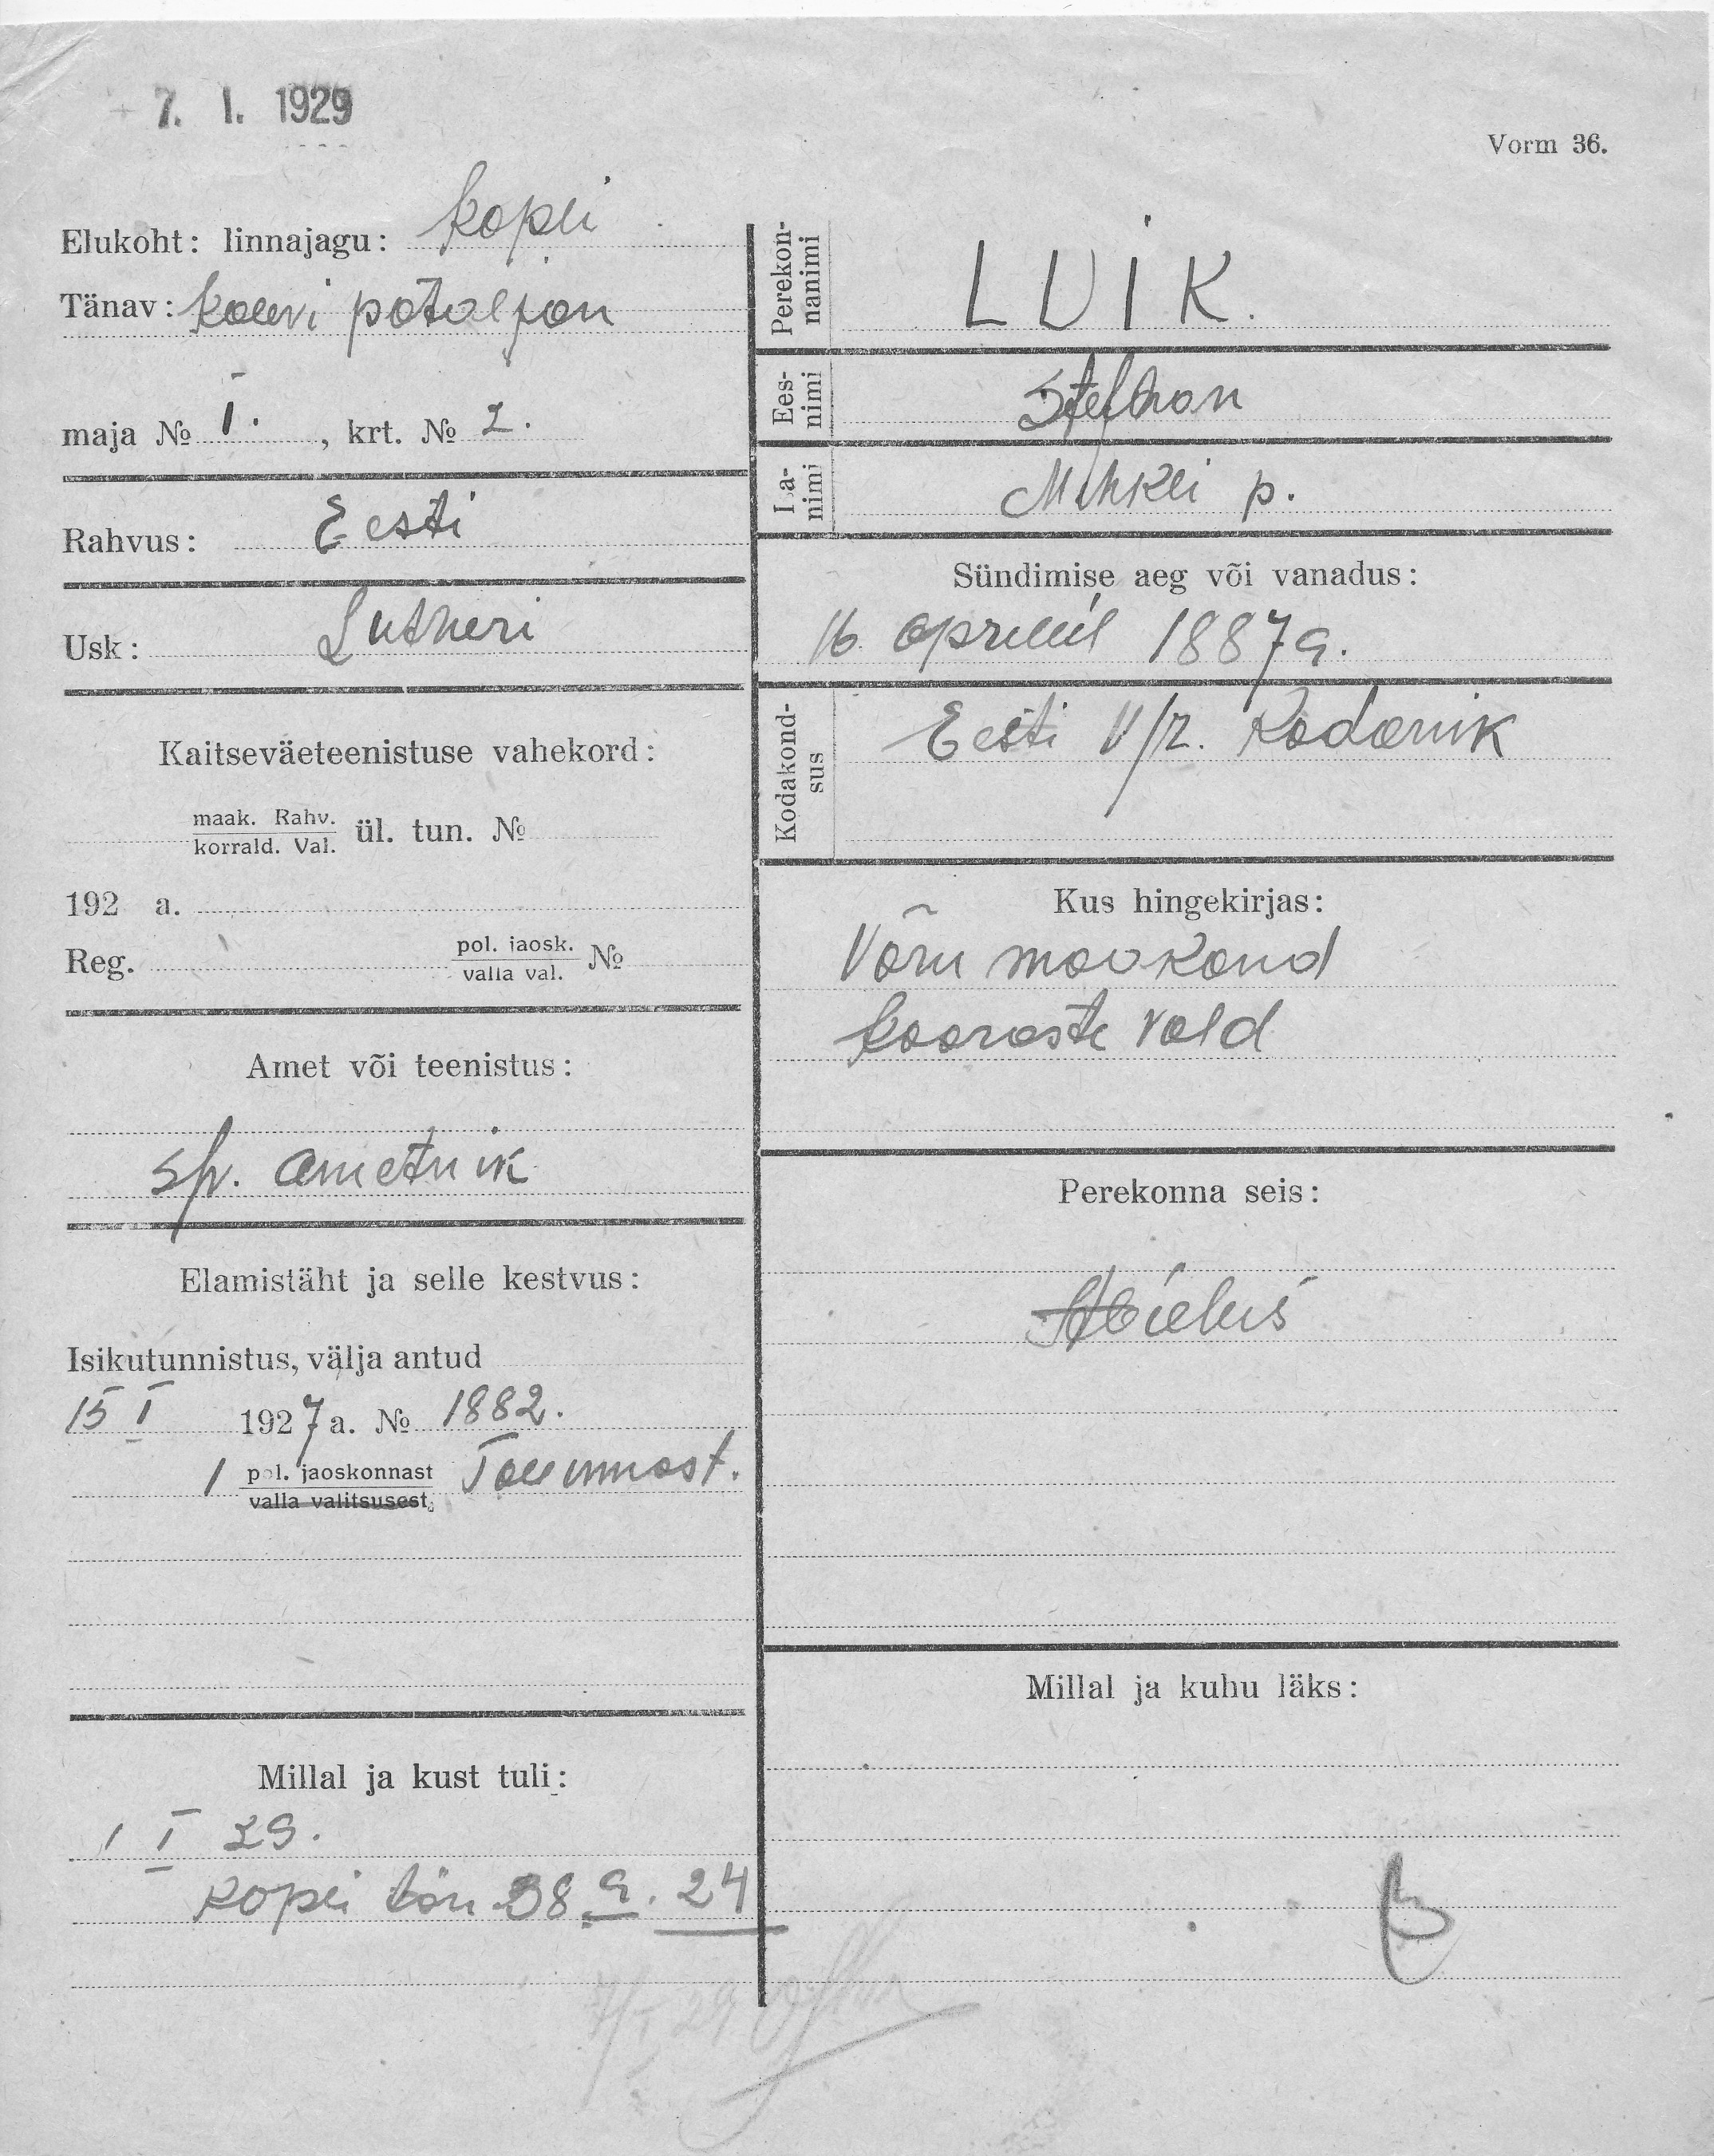 7. I. 1929
Vorm 36.
Elukoht: linnajagu: Kopli
Tänav: Kalevi pataljon
maja № I. , krt. № 2.
Rahvus: Eesti
Usk: Lutheri
Kaitseväeteenistuse vahekord:
maak. Rahv.
korrald. Val.
ül. tun. №
192 a.
Reg. pol. jaosk.
valla val.
№
Amet või teenistus:
sp. ametnik
Elamistäht ja selle kestvus:
Isikutunnistus, välja antud
15 I 1927 a. № 1882.
1 pol. jaoskonnast Tallinnast.
valla valitsusest
Millal ja kust tuli:
1 I 29.
Kopli tän 38 a. 24
Perekon-
nanimi
LUIK.
Ees-
nimi
Stefhan
Isa-
nimi
Mihkli p.
Sündimise aeg või vanadus:
16 aprillil 1887 a.
Kodakond-
sus
Eesti V/r. Kodanik
Kus hingekirjas:
Võru maakond
Kooraste vald
Perekonna seis:
Abielus
Millal ja kuhu läks: